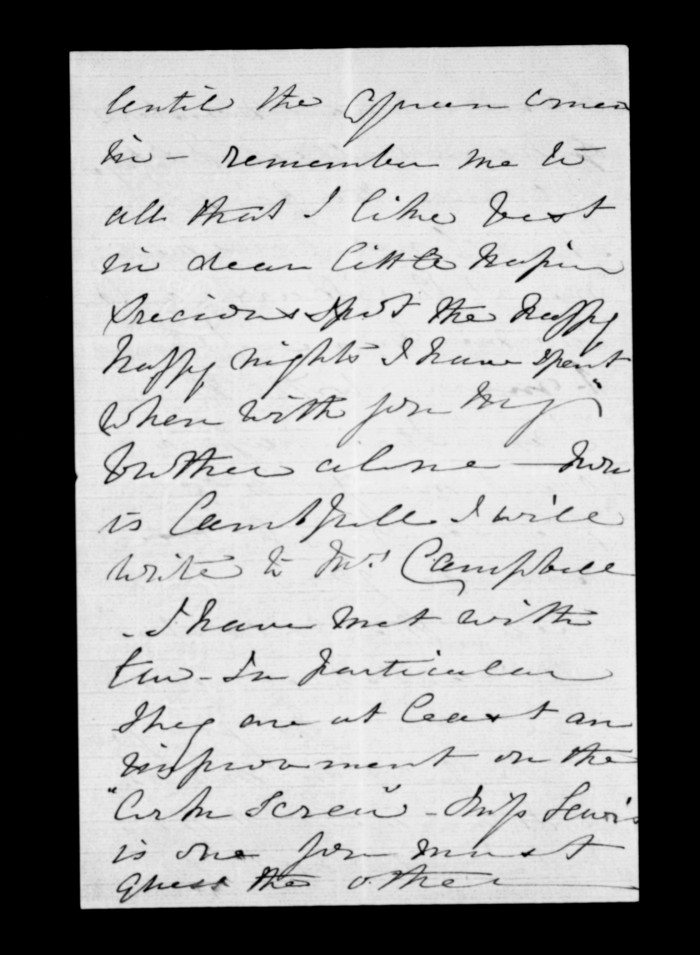 Until the Queen comes
in - remember me to
all that I like best
in dear little Napier
Precious spot the happy
happy nights I have spent
when with you my
brother alone - how
is Campbell I will
write to Mrs Campbell
- I have met with
two - In particular
they are at least an
improvement on the
"Cork Screw" - Miss Lewis
is one you must
guess the other